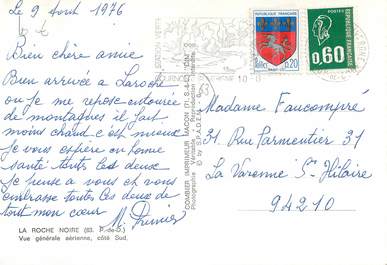 Le 9 Août 1976
Bien chère amie
Bien arrivée a Laroche
ou je me repose entourée
de montagnes il fait
moins chaud c'est mieux
je vous espère en bonne
santé touts les deux
je pense a vous et vous
embrasse touts les deux de
tout mon coeur
LA ROCHE NOIRE (63. P.-de-D.)
Vue générale aérienne, côté Sud.
EDITION VERITABLE
COMBIER IMPRIMEUR MACON (71. S.-&-L.) "CIM"
Photographie Véritable - Reproduction interdite
© by S.P.A.D.E.M.
63
0,20
POSTES
0,60
Madame Faucompré
31 Rue Parmentier 31
La Varenne St Hilaire
94210